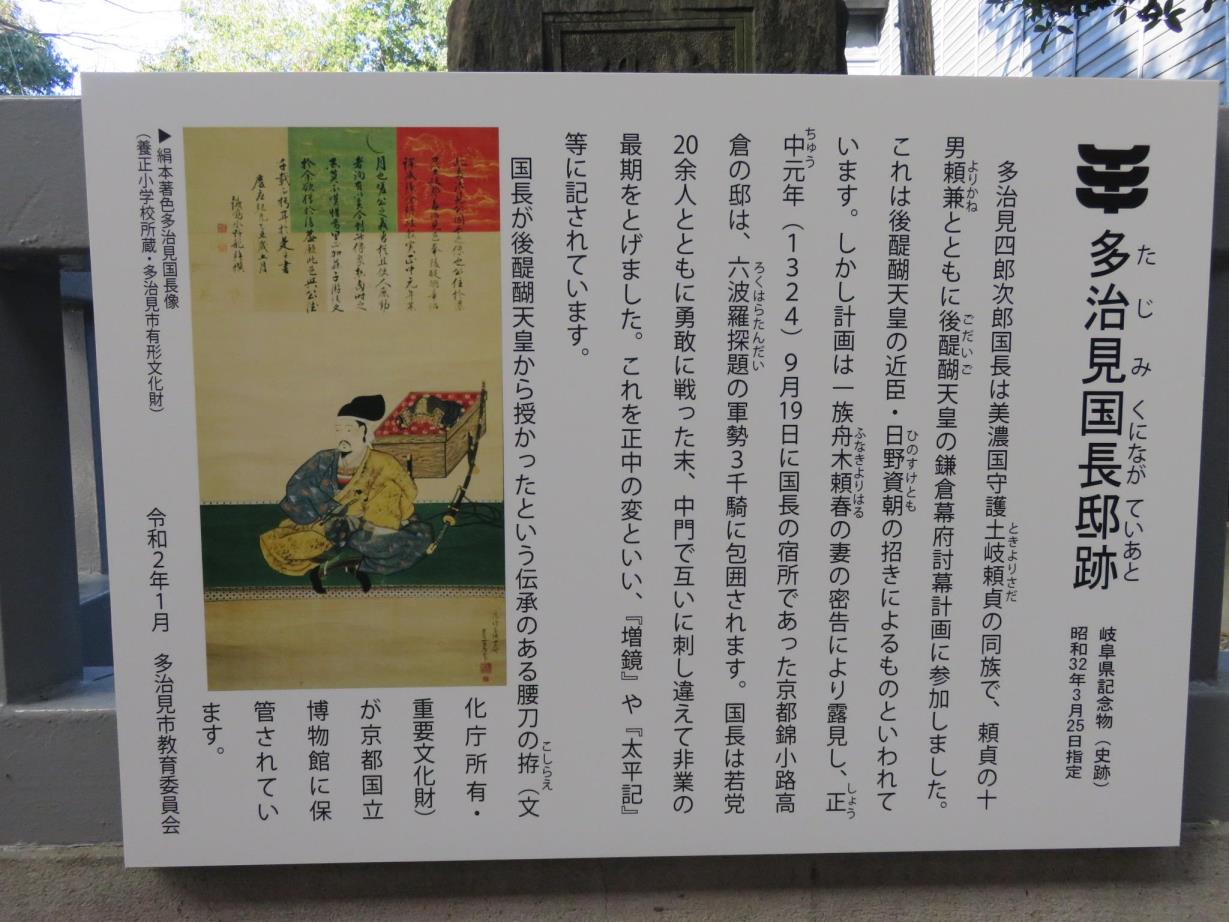 多治見国長邸跡
たじみくにながていあと
岐阜県記念物（史跡）
昭和32年3月25日指定
多治見四郎次郎国長は美濃国守護土岐頼貞の同族で、頼貞の十
ときよりさだ
男頼兼とともに後醍醐天皇の鎌倉幕府討幕計画に参加しました。
よりかね
ごだいご
これは後醍醐天皇の近臣・日野資朝の招きによるものといわれて
ひのすけとも
います。しかし計画は一族舟木頼春の妻の密告により露見し、正
ふなきよりはる
しょう
中元年（1324）9月19日に国長の宿所であった京都錦小路高
ちゅう
倉の邸は、六波羅探題の軍勢3千騎に包囲されます。国長は若党
ろくはらたんだい
20余人とともに勇敢に戦った末、中門で互いに刺し違えて非業の
最期をとげました。これを正中の変といい、『増鏡』や『太平記』
等に記されています。
国長が後醍醐天皇から授かったという伝承のある腰刀の拵（文
こしらえ
化庁所有・
重要文化財）
が京都国立
博物館に保
管されてい
ます。
▶絹本著色多治見国長像
（養正小学校所蔵・多治見市有形文化財）
令和2年1月　多治見市教育委員会